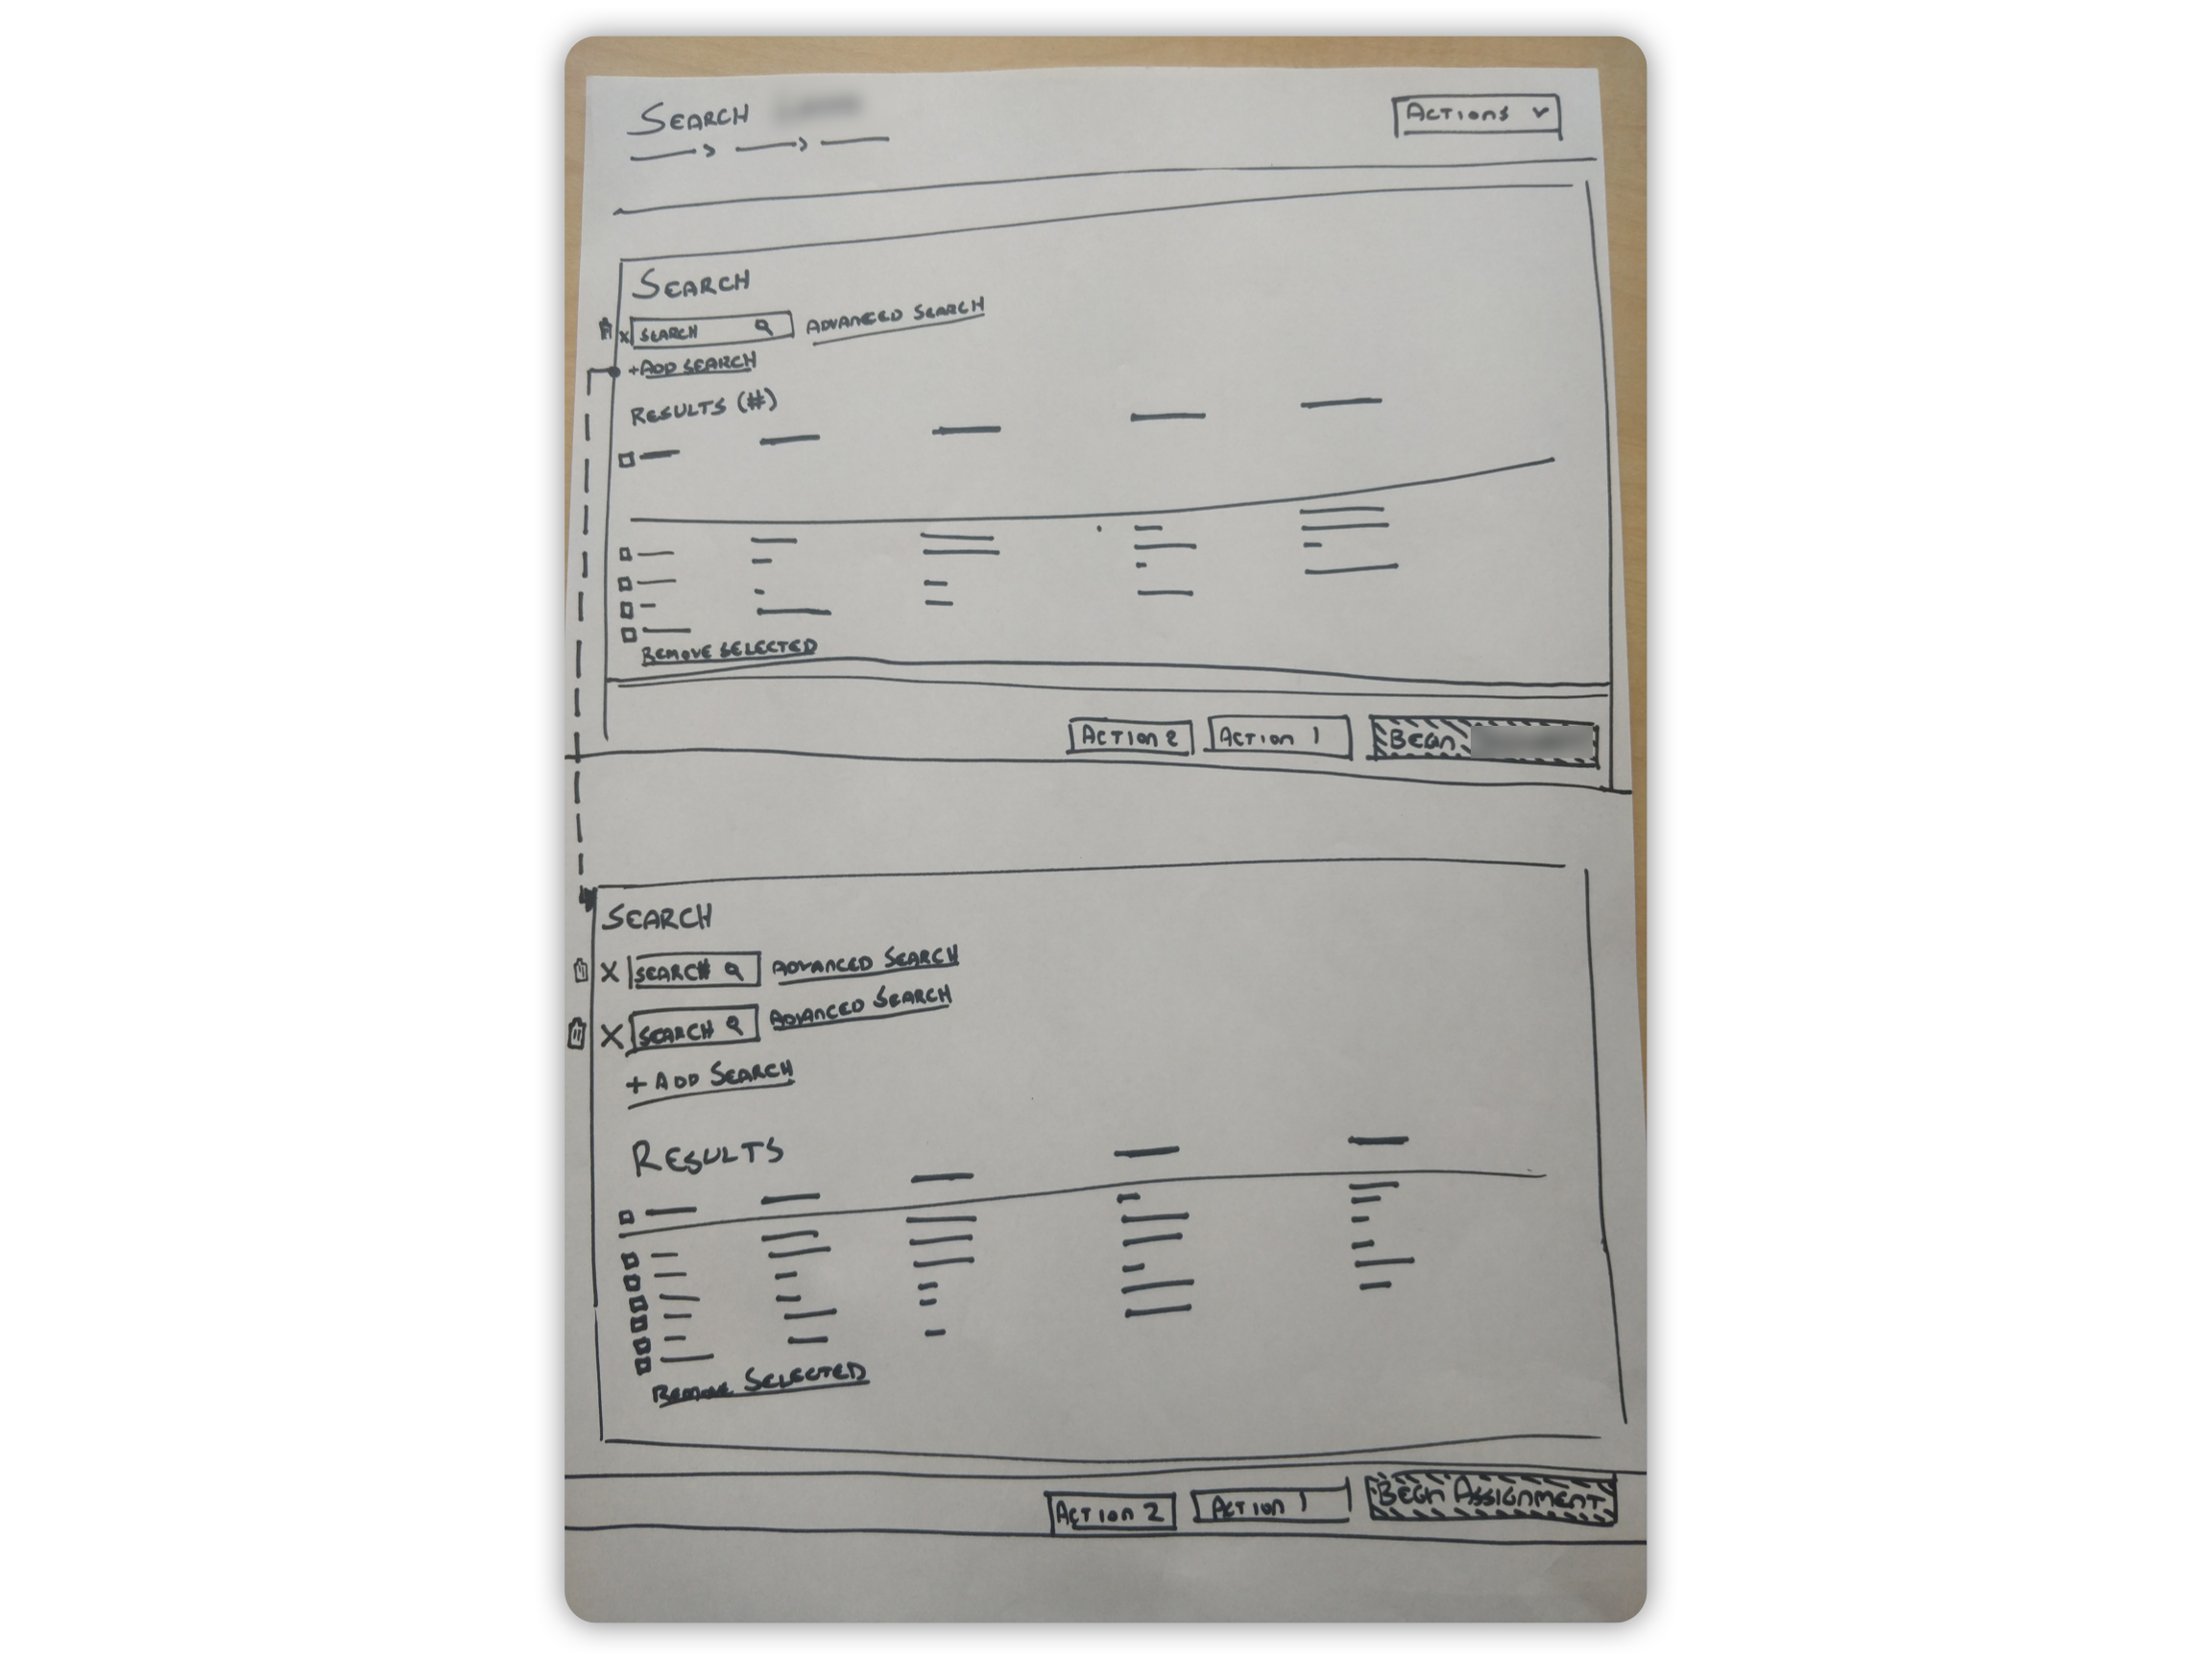 SEARCH
ACTIONS
SEARCH
X SEARCH ADVANCED SEARCH
+ADD SEARCH
RESULTS (#)
REMOVE SELECTED
ACTION 2 ACTION 1 BEGIN
SEARCH
X SEARCH ADVANCED SEARCH
X SEARCH ADVANCED SEARCH
+ ADD SEARCH
RESULTS
REMOVE SELECTED
ACTION 2 ACTION 1 BEGIN ASSIGNMENT